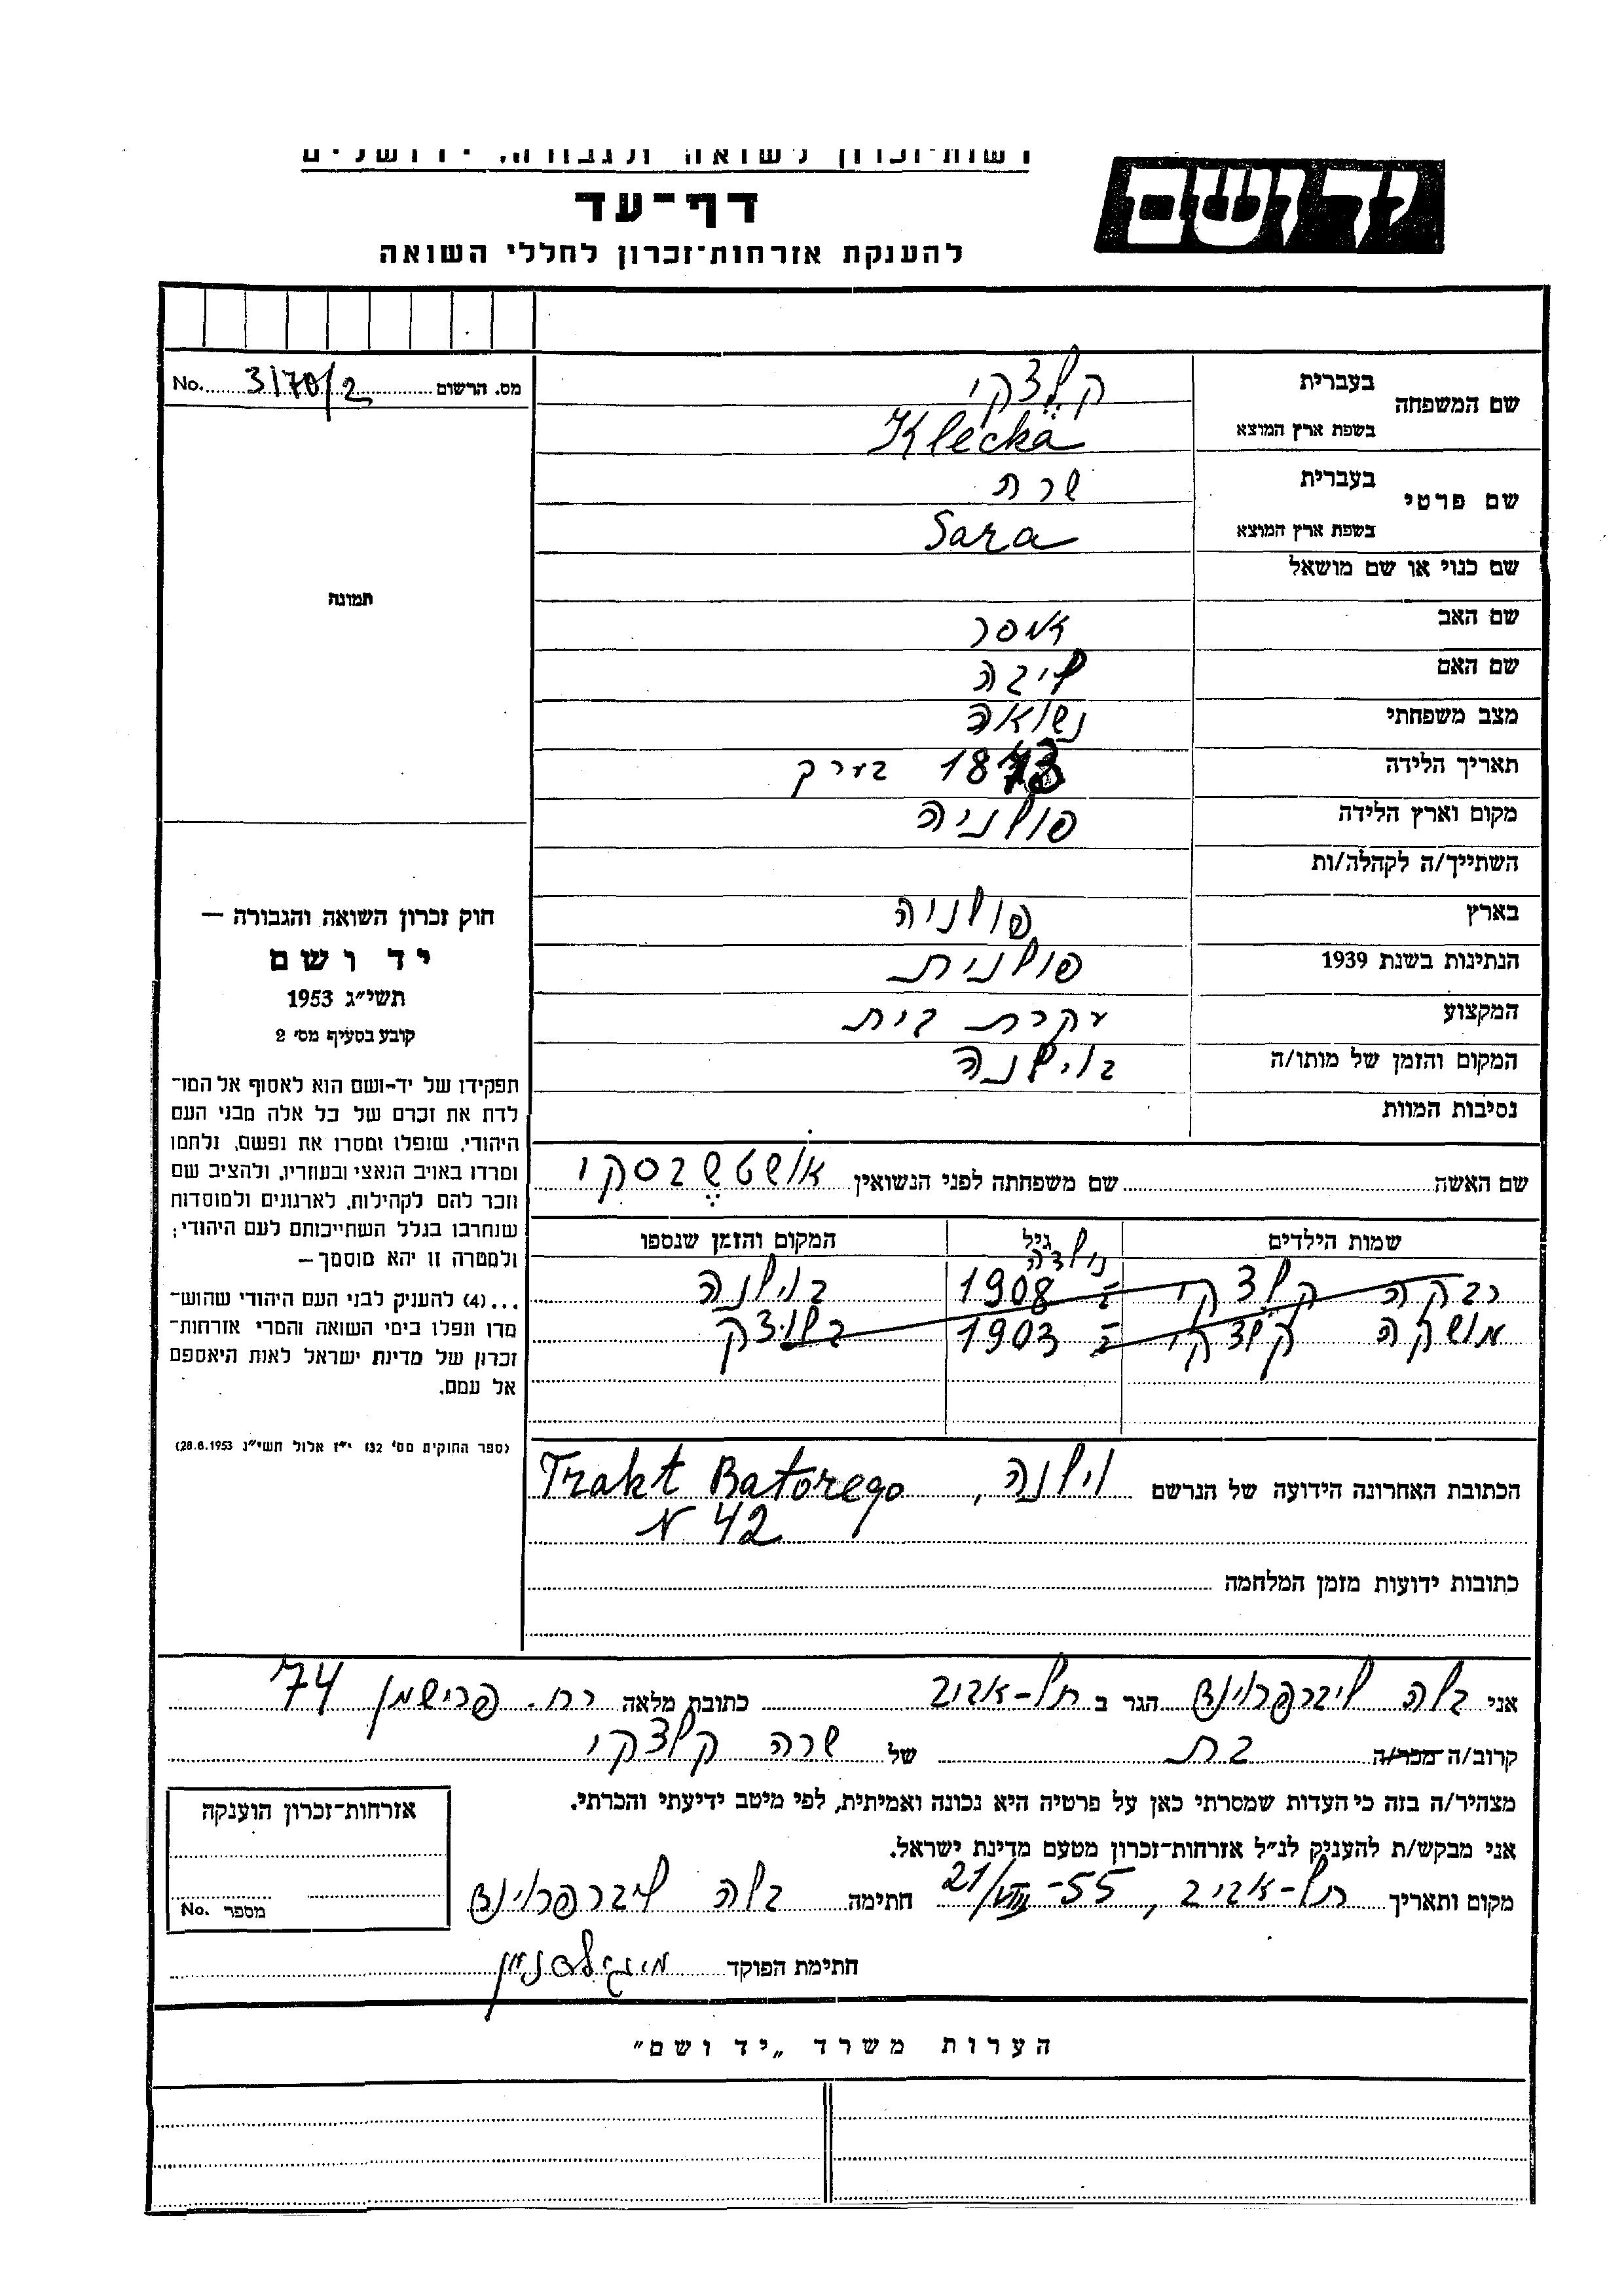 יד ושם
רשות-זכרון לשואה ולגבורה, ירושלים
דף-עד
להענקת אזרחות-זכרון לחללי השואה
מס. הרשום 3170/2 No.
שם המשפחה בעברית קלצקי
בשפת ארץ המוצא Klecka
שם פרטי בעברית שרה
בשפת ארץ המוצא Sara
שם כנוי או שם מושאל
שם האב
שם האם ליבה
מצב משפחתי נשואה
תאריך הלידה 1873 בערך
מקום וארץ הלידה פולניה
השתייך/ה לקהלה/ות
בארץ פולניה
הנתינות בשנת 1939 פולנית
המקצוע עקרת בית
המקום והזמן של מותו/ה בוילנה
נסיבות המוות
תמונה
חוק זכרון השואה והגבורה –
יד ושם
תשי״ג 1953
קובע בסעיף מס׳ 2
תפקידו של יד-ושם הוא לאסוף אל המו־
לדת את זכרם של כל אלה מבני העם
היהודי, שנפלו ומסרו את נפשם, נלחמו
ומרדו באויב הנאצי ובעוזריו, ולהציב שם
וזכר להם לקהילות, לארגונים ולמוסדות
שנחרבו בגלל השתייכותם לעם היהודי;
ולמטרה זו יהא מוסמך –
...(4) להעניק לבני העם היהודי שהוש־
מדו ונפלו בימי השואה והמרי אזרחות־
זכרון של מדינת ישראל לאות היאספם
אל עמם.
(ספר החוקים מס׳ 132 י״ז אלול תשי״ג 28.8.1953)
שם האשה שם משפחתה לפני הנשואין
שמות הילדים גיל המקום והזמן שנספו
נולדה
רבקה קלצקי ב 1908 בוילנה
מושקה קלצקי ב 1903
הכתובת האחרונה הידועה של הנרשם וילנה, Trakt Batorego
N 42
כתובות ידועות מזמן המלחמה
אני בלה ליברפרוינד הגר ב תל-אביב כתובת מלאה רח. פרישמן 74
קרוב/ה מכר/ה בת של שרה קלצקי
מצהיר/ה בזה כי העדות שמסרתי כאן על פרטיה היא נכונה ואמיתית, לפי מיטב ידיעתי והכרתי.
אני מבקש/ת להעניק לנ״ל אזרחות-זכרון מטעם מדינת ישראל.
מקום ותאריך תל-אביב, 21/VIII-55 חתימה בלה ליברפרוינד
חתימת הפוקד
אזרחות-זכרון הוענקה
מספר No.
הערות משרד „יד ושם״